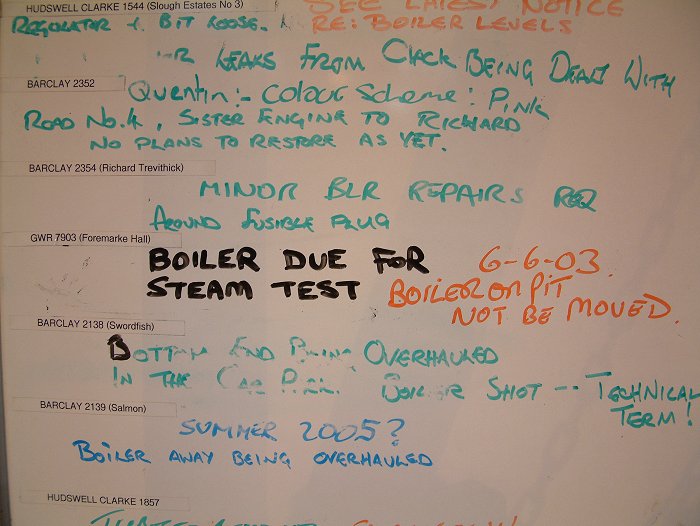 HUDSWELL CLARKE 1544 (Slough Estates No 3)
SEE LATEST NOTICE
REGULATOR A BIT LOOSE.
RE: BOILER LEVELS
LEAKS FROM CLACK BEING DEALT WITH
BARCLAY 2352
QUENTIN:- COLOUR SCHEME: PINK
ROAD NO.4, SISTER ENGINE TO RICHARD
NO PLANS TO RESTORE AS YET.
BARCLAY 2354 (Richard Trevithick)
MINOR BLR REPAIRS REQ
AROUND FUSIBLE PLUG
GWR 7903 (Foremarke Hall)
BOILER DUE FOR 6-6-03
STEAM TEST BOILER ON PIT
NOT BE MOVED.
BARCLAY 2138 (Swordfish)
BOTTOM END BEING OVERHAULED
IN THE CAR PARK. BOILER SHOT -- TECHNICAL
TERM!
BARCLAY 2139 (Salmon)
SUMMER 2005?
BOILER AWAY BEING OVERHAULED
HUDSWELL CLARKE 1857